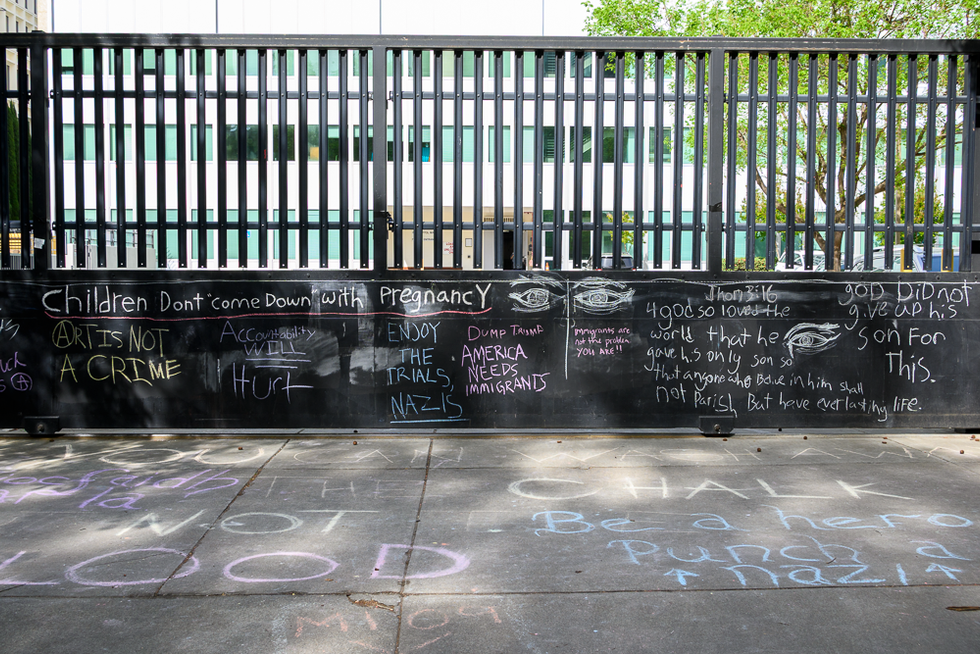 Children Dont "come Down" with Pregnancy
ART IS NOT
A CRIME
Accountability
WILL
Hurt
ENJOY
THE
TRIALS,
NAZIS
DUMP TRUMP
AMERICA
NEEDS
IMMIGRANTS
immigrants are
not the problem
YOU ARE!!
Jhon 3:16
4 god so loved the
world that he
gave his only son so
that anyone who
in him shall
not Parish But have everlasting life.
GOD DID not
give up his
Son For
This.
YOU CAN WASH AWAY
THE CHALK
NOT
LOOD
Be a hero
Punch a
nazi